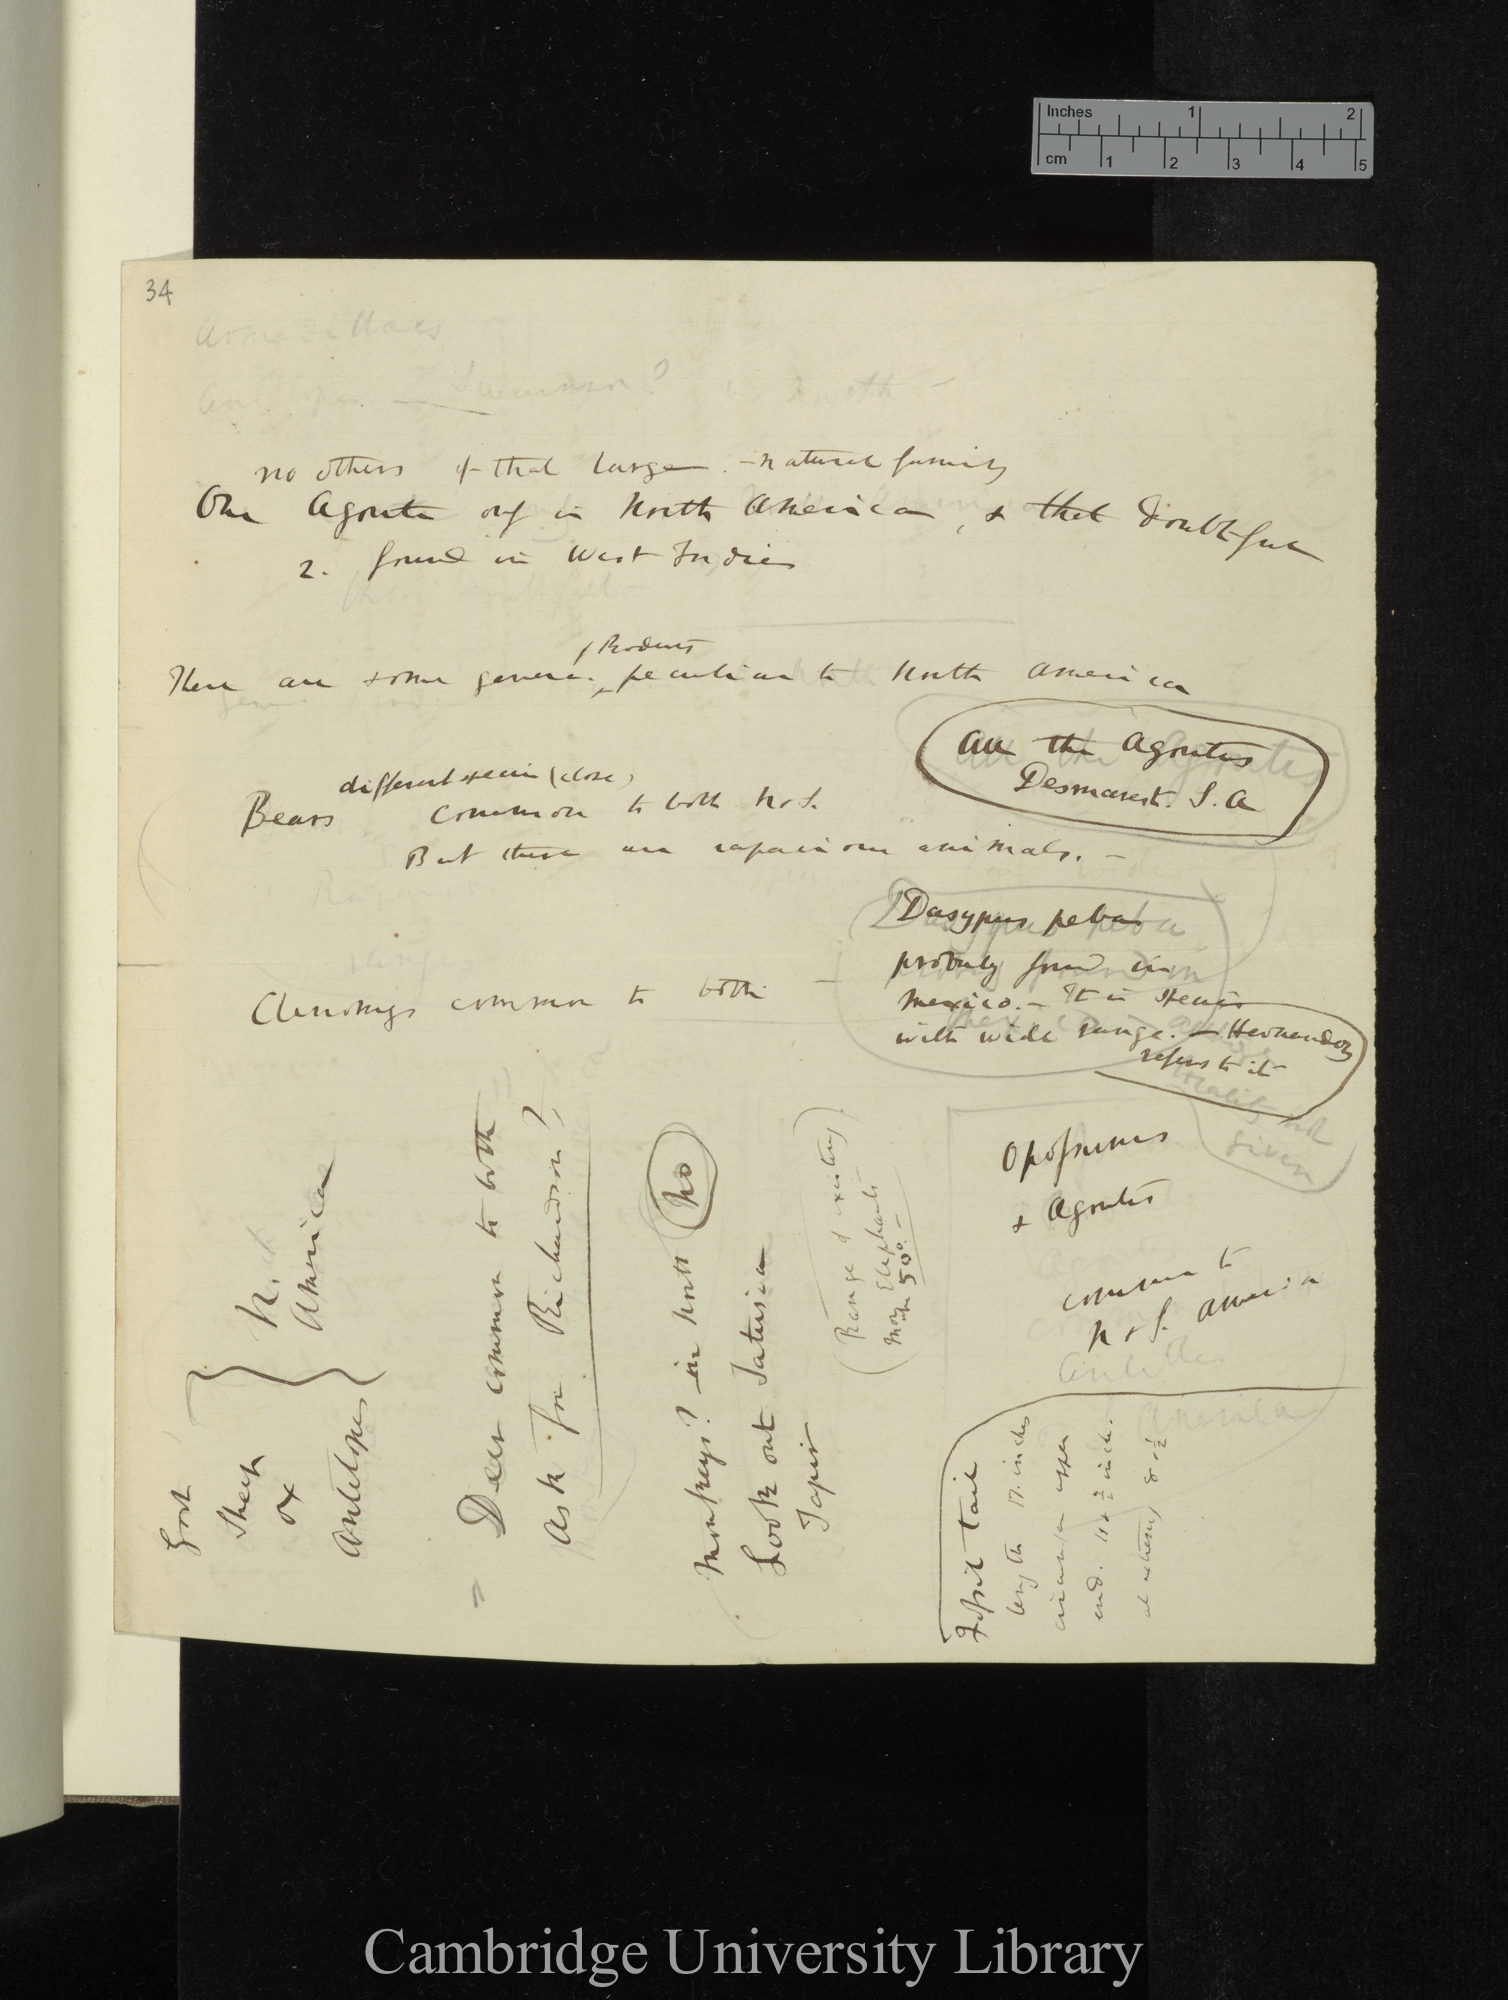 Inches 1 2
cm 1 2 3 4 5
34
Armadilloes
North -
no others of that large - natural family
One Agouti only in North America, & that doubtful
2. found in West Indies
Rodents
There are some genera peculiar to North America
All the Agoutis
Desmarest. S. A
different species (close)
Bears common to both N & S.
But these are rapacious animals. -
Dasypus peba
probably found in
Mexico. - It is species
with wide range. - Hernandez
refers to it
locality not
given
Clenomys common to both -
Opossums
& Agoutis
common to
N & S. America
Antilles
America
Goat
Sheep
ox
Antelopes
N.
America
Deer common to both
Ask for Richardson?
Monkeys? in North No
Look out Tatusia
Tapir
(Range of existing
Elephants
50°. -
Fossil tail
length 17. inches
end. 11 & 1/2 inch.
at extremity 8 1/2
Cambridge University Library